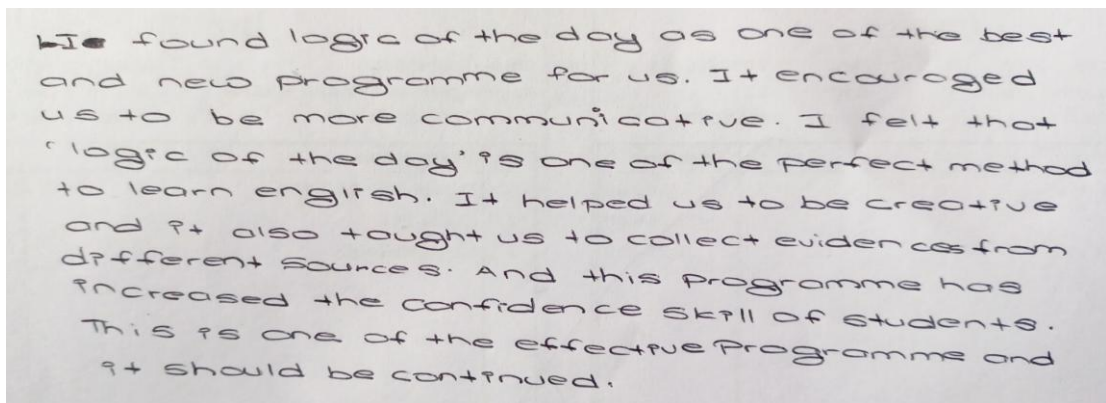 I found logic of the day as one of the best
and new programme for us. It encouraged
us to be more communicative. I felt that
'logic of the day' is one of the perfect method
to learn english. It helped us to be creative
and it also taught us to collect evidences from
different sources. And this programme has
increased the confidence skill of students.
This is one of the effective programme and
it should be continued.